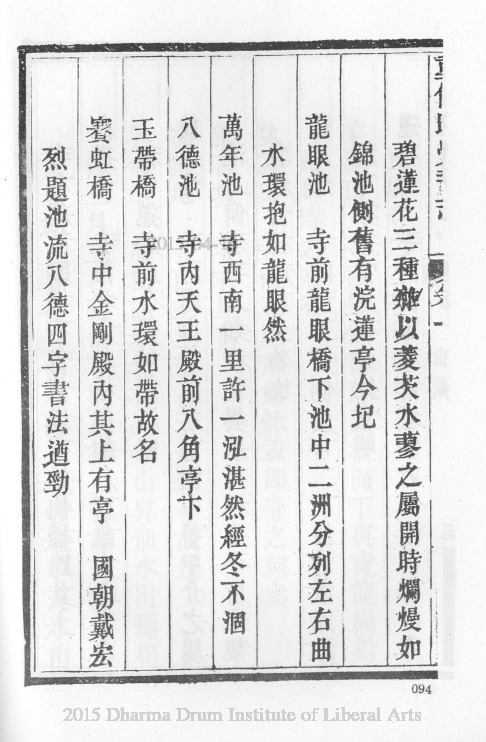 碧蓮花三種雜以菱芡水蓼之屬開時爛熳如
錦池側舊有浣蓮亭今圮
龍眼池 寺前龍眼橋下池中二洲分列左右曲
水環抱如龍眼然
萬年池 寺西南一里許一泓湛然經冬不涸
八德池 寺內天王殿前八角亭下
玉帶橋 寺前水環如帶故名
賽虹橋 寺中金剛殿內其上有亭 國朝戴宏
烈題池流八德四字書法遒勁
094
2015 Dharma Drum Institute of Liberal Arts